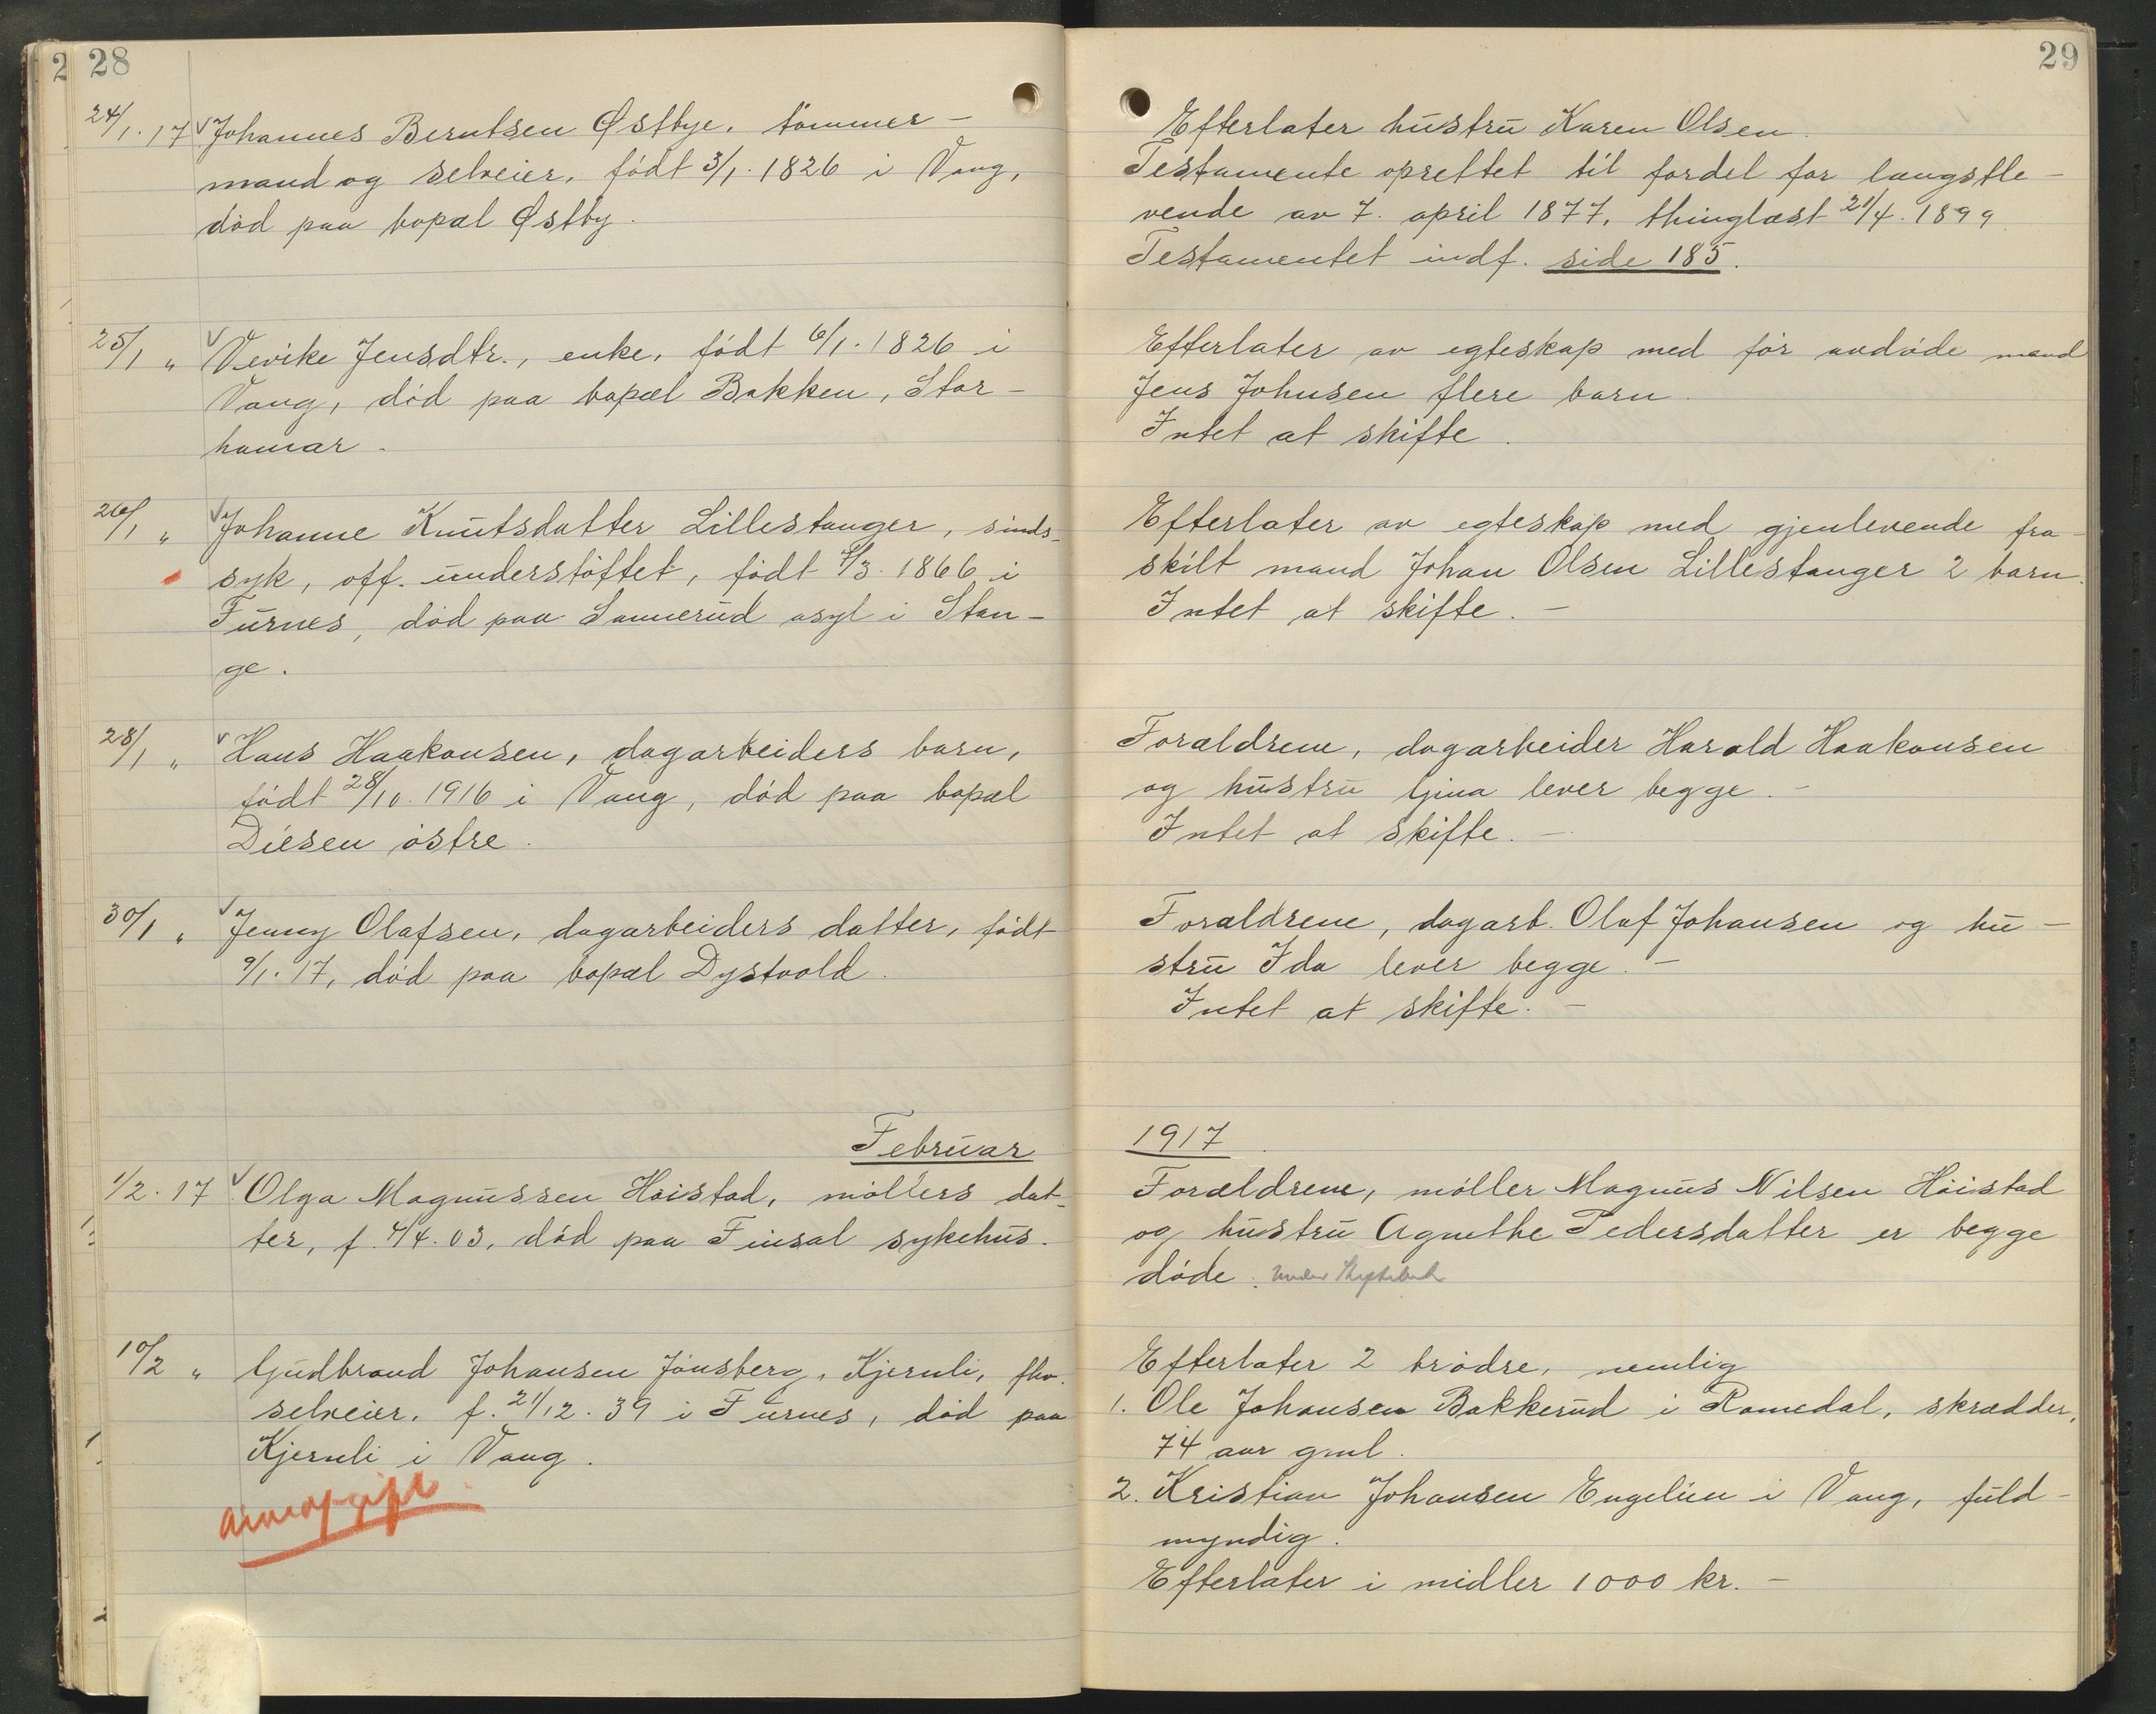 28
24/1. 17 Johannes Berntsen Østbye, tömmer-
mand og selveier, födt 3/1. 1826 i Vang,
död paa bopæl Østby.
25/1 " Vevike Jensdtr., enke, födt 6/1. 1826 i
Vang, död paa bopæl Bakken, Stor-
hamar.
26/1 " Johanne Knutsdatter Lillestanger, sinds-
syk, off. understöttet, födt 4/3. 1866 i
Furnes, död paa Sannerud asyl i Stan-
ge.
28/1 " Hans Haakonsen, dagarbeiders barn,
födt 28/10. 1916 i Vang, död paa bopæl
Diesen östre.
30/1 " Jenny Olafsen, dagarbeiders datter, födt
9/1. 17, död paa bopæl Dystvold.
Februar
1/2. 17 Olga Magnussen Höistad, möllers dat-
ter, f. 4/4. 03, död paa Finsal sykehus.
10/2 " Gudbrand Johansen Jönsberg, Kjernli, fhv.
selveier, f. 21/12. 39 i Furnes, död paa
Kjernli i Vang.
arveavgift.
29
Efterlater hustru Karen Olsen.
Testamente oprettet til fordel for længstle-
vende av 7. april 1877, thinglæst 21/4. 1899.
Testamentet indf. side 185.
Efterlater av egteskap med för avdöde mand
Jens Johnsen flere barn.
Intet at skifte.
Efterlater av egteskap med gjenlevende fra-
skilt mand Johan Olsen Lillestanger 2 barn.
Intet at skifte. -
Forældrene, dagarbeider Harald Haakonsen
og hustru Gina lever begge. -
Intet at skifte. -
Forældrene, dagarb. Olaf Johansen og hu-
stru Ida lever begge. -
Intet at skifte. -
1917.
Forældrene, möller Magnus Nilsen Höistad
og hustru Agnethe Pedersdatter er begge
döde. Under
Efterlater 2 brödre, nemlig
1. Ole Johansen Bakkerud i Romedal, skrædder,
74 aar gml.
2. Kristian Johansen Engelien i Vang, fuld-
myndig.
Efterlater i midler 1000 kr. -